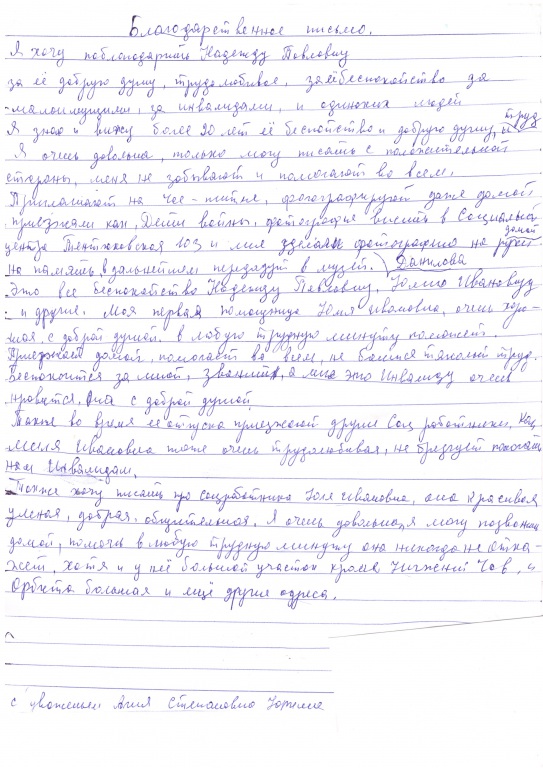 Благодарственное письмо.
Я хочу поблагодарить Надежду Павловну
за её добрую душу, трудолюбивое, за её беспокойство за
малоимущими, за инвалидами, и одиноких людей
Я знаю и вижу более 20 лет её беспокойство и добрую душу, и труд
Я очень довольна, только могу писать с положительной
стороны, меня не забывают и помогают во всем.
Приглашают на Чае-питие, фотографируют даже домой
приезжали как Дети войны, фотография висить в Социальной
центре Тентюковская 103 и мне зделали фотографию на домой
на память в дальнейшем передадут в музей. Данилова
Это все беспокойство Надежду Павловну, Юлию Ивановну
и другие. Моя первая помощница Юлия Ивановна, очень хоро-
шая, с доброй душой. в любую трудную минуту поможет.
Приезжает домой, помогает во всем, не боится тяжолый труд.
Беспокоится за мной, званит, а мне это Инвалиду очень
нравится. Она с доброй душой
Также во время её отпуска приезжают другие Соц работники, как
Ивановна тоже очень трудолюбивая, не брезгует помогать
нам Инвалидам.
Также хочу писать про соцработника Юлия Ивановна, она красивая
умная, добрая, общительная. Я очень довольна, я могу позвонить
домой, помочь в любую трудную минуту она никогда не отка-
жет, хотя и у неё большой участок кроме Чов, и
Орбита большая и ещё другие адреса.
с уважением Агния Степановна